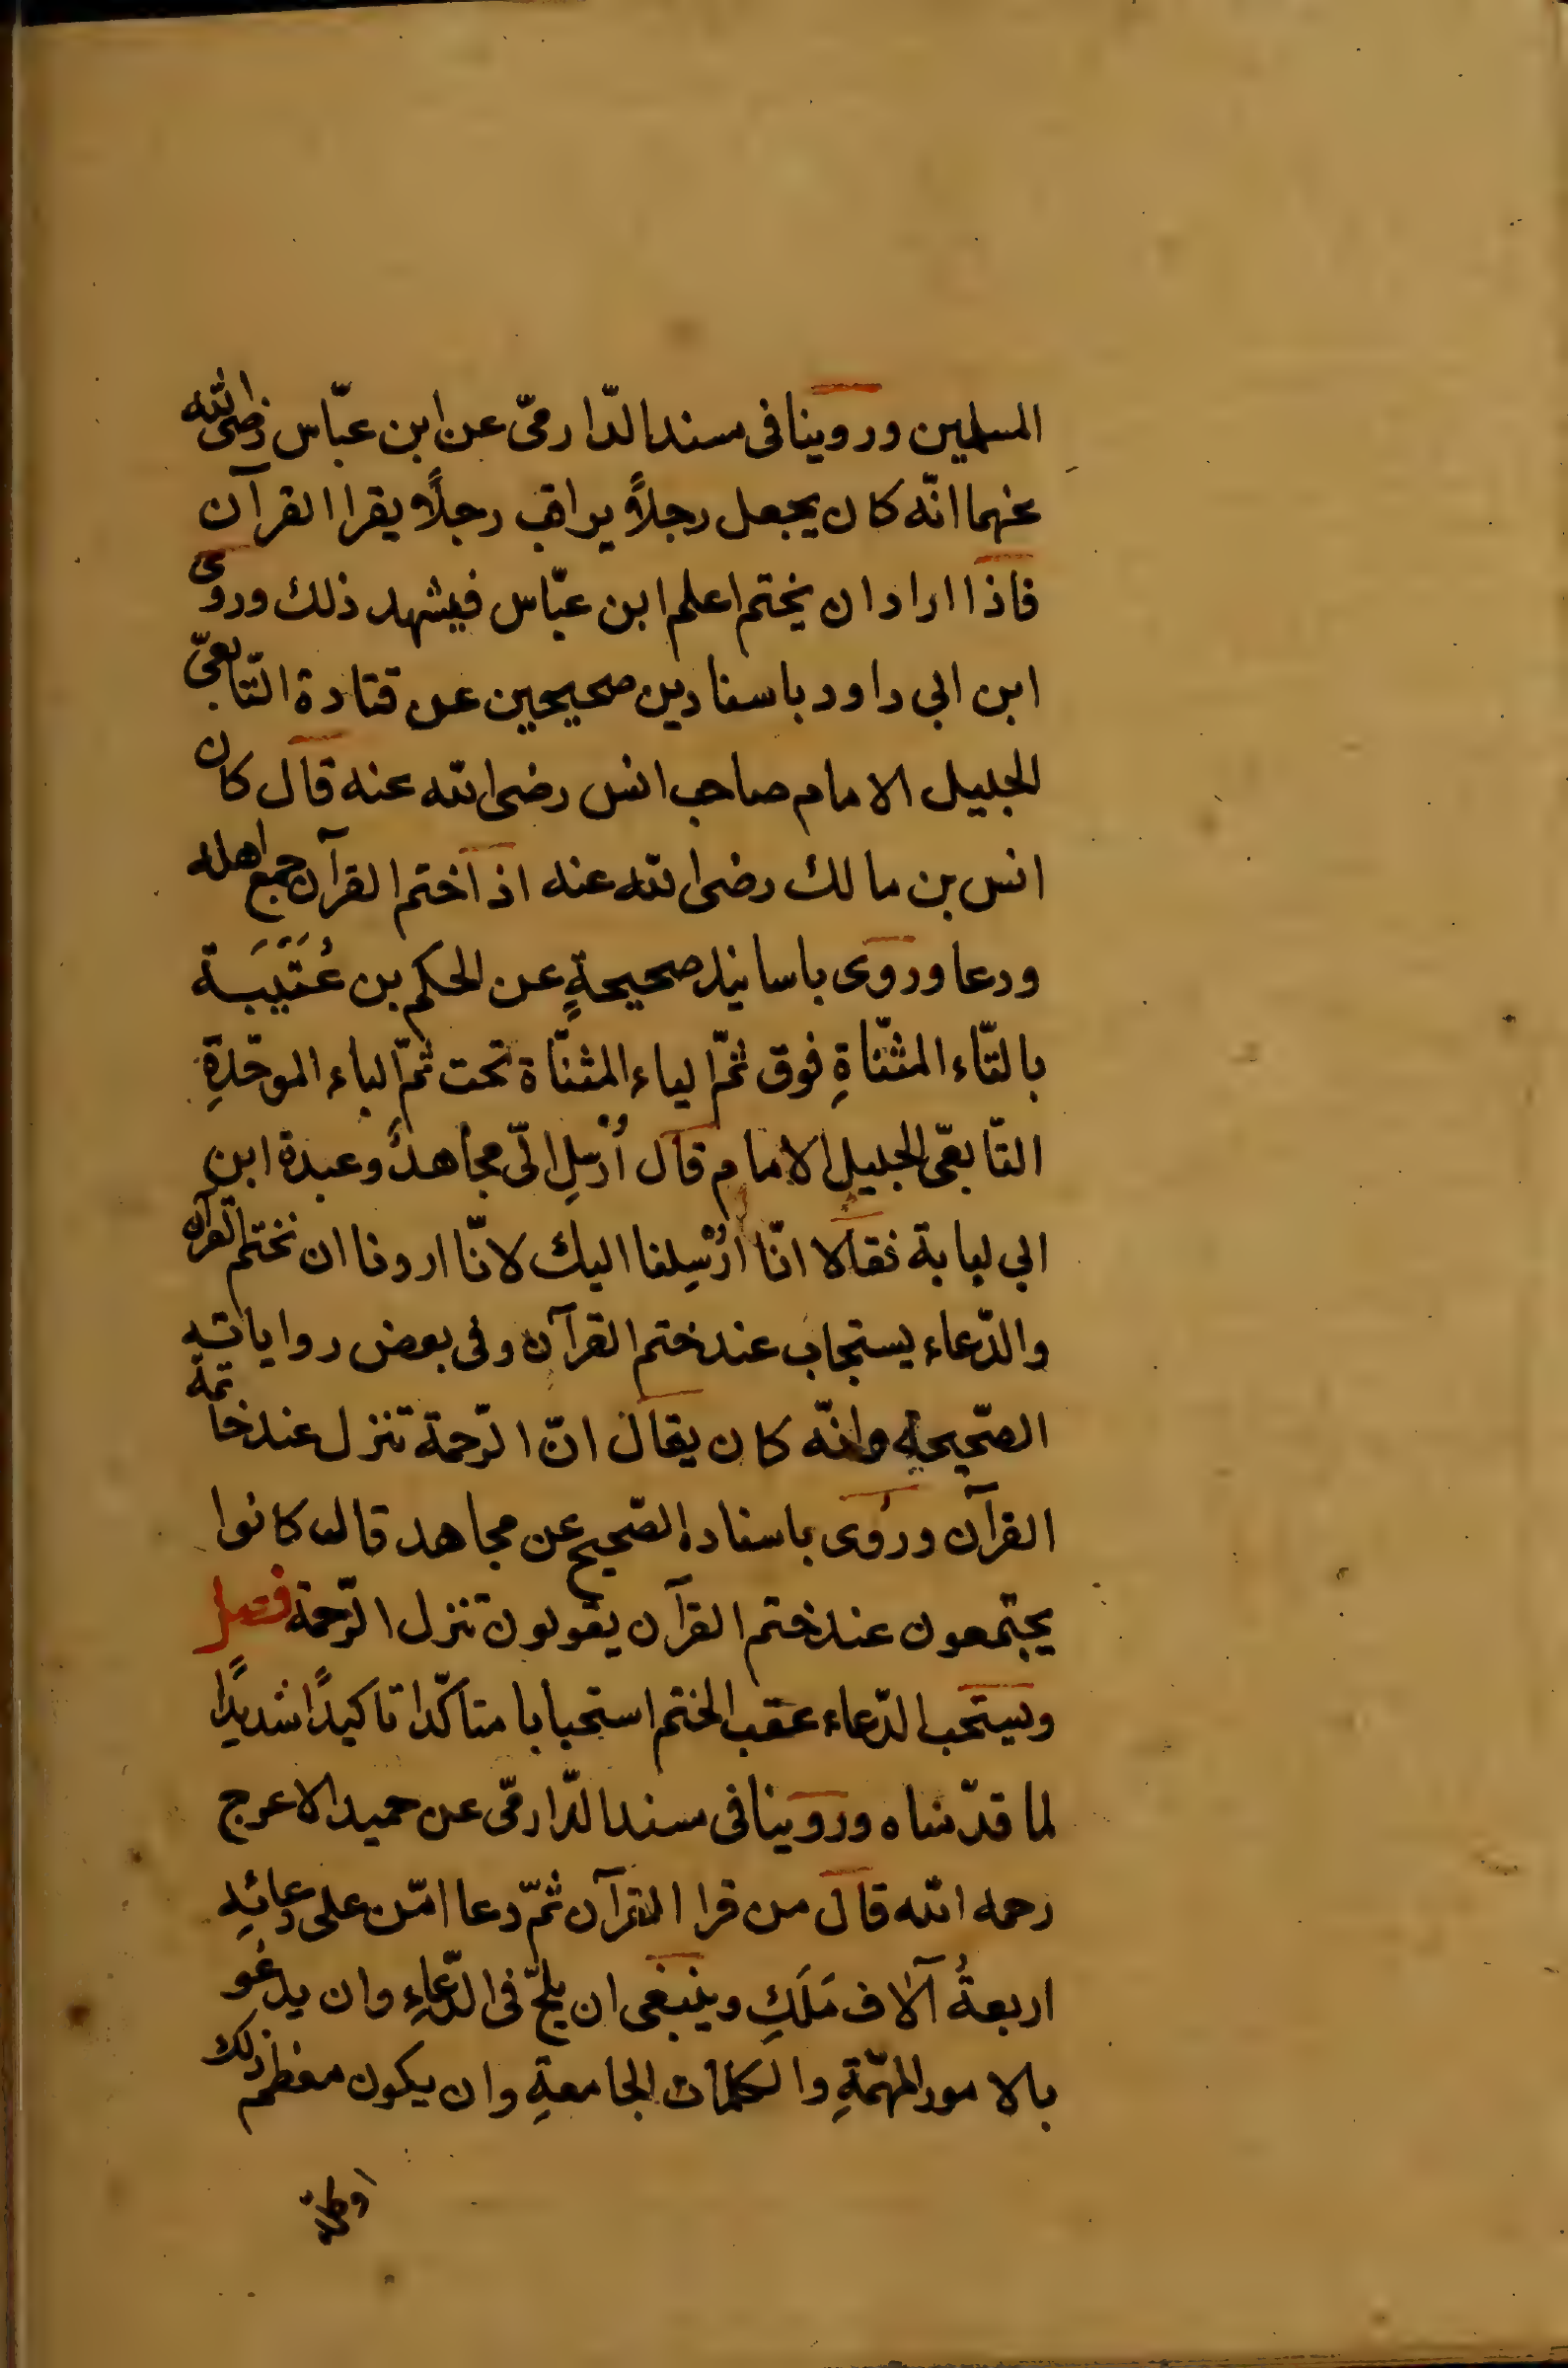 المسلمين وروينا فى مسند الدّارمىّ عن ابن عبّاس رضى الله
عنهما انّه كان يجعل رجلاً يراقب رجلاً يقرا القرآن
فاذا اراد ان يختم اعلم ابن عبّاس فيشهد ذلك وروى
ابن ابى داود باسنادين صحيحين عن قتادة التّابعىّ
الجليل الامام صاحب انس رضى الله عنه قال كان
انس بن مالك رضى الله عنه اذا ختم القرآن جمع اهله
ودعا وروى باسانيد صحيحةٍ عن الحكم بن عُتَيْبَة
بالتّاء المثنّاةِ فوق ثمّ الياء المثنّاة تحت ثمّ الباء الموحّدةِ
التّابعىّ الجليل الامام قال أُرْسِل الىّ مجاهدٌ وعبدة ابن
ابى لبابة فقالا انّا أُرْسِلنا اليك لانّا اردنا ان نختم القرآن
والدّعاء يستجاب عند ختم القرآن وفى بعض رواياته
الصّحيحه وانّه كان يقال انّ الرّحمة تنزل عند خاتمة
القرآن وروى باسناده الصّحيح عن مجاهد قال كانوا
يجتمعون عند ختم القرآن يقولون تنزل الرّحمة فصل
ويستحب الدّعاء عقب الختم استحبابا متاكّدا تاكيدًا شديدًا
لما قدّمناه وروينا فى مسند الدّارمّى عن حميد الاعرج
رحمه الله قال من قرا القرآن ثمّ دعا امّن على دعائِه
اربعةُ آلاف مَلَكٍ وينبغى ان يلحّ فى الدّعاءِ وان يدعو
بالامور المهمّةِ والكلمات الجامعةِ وان يكون معظم ذلك